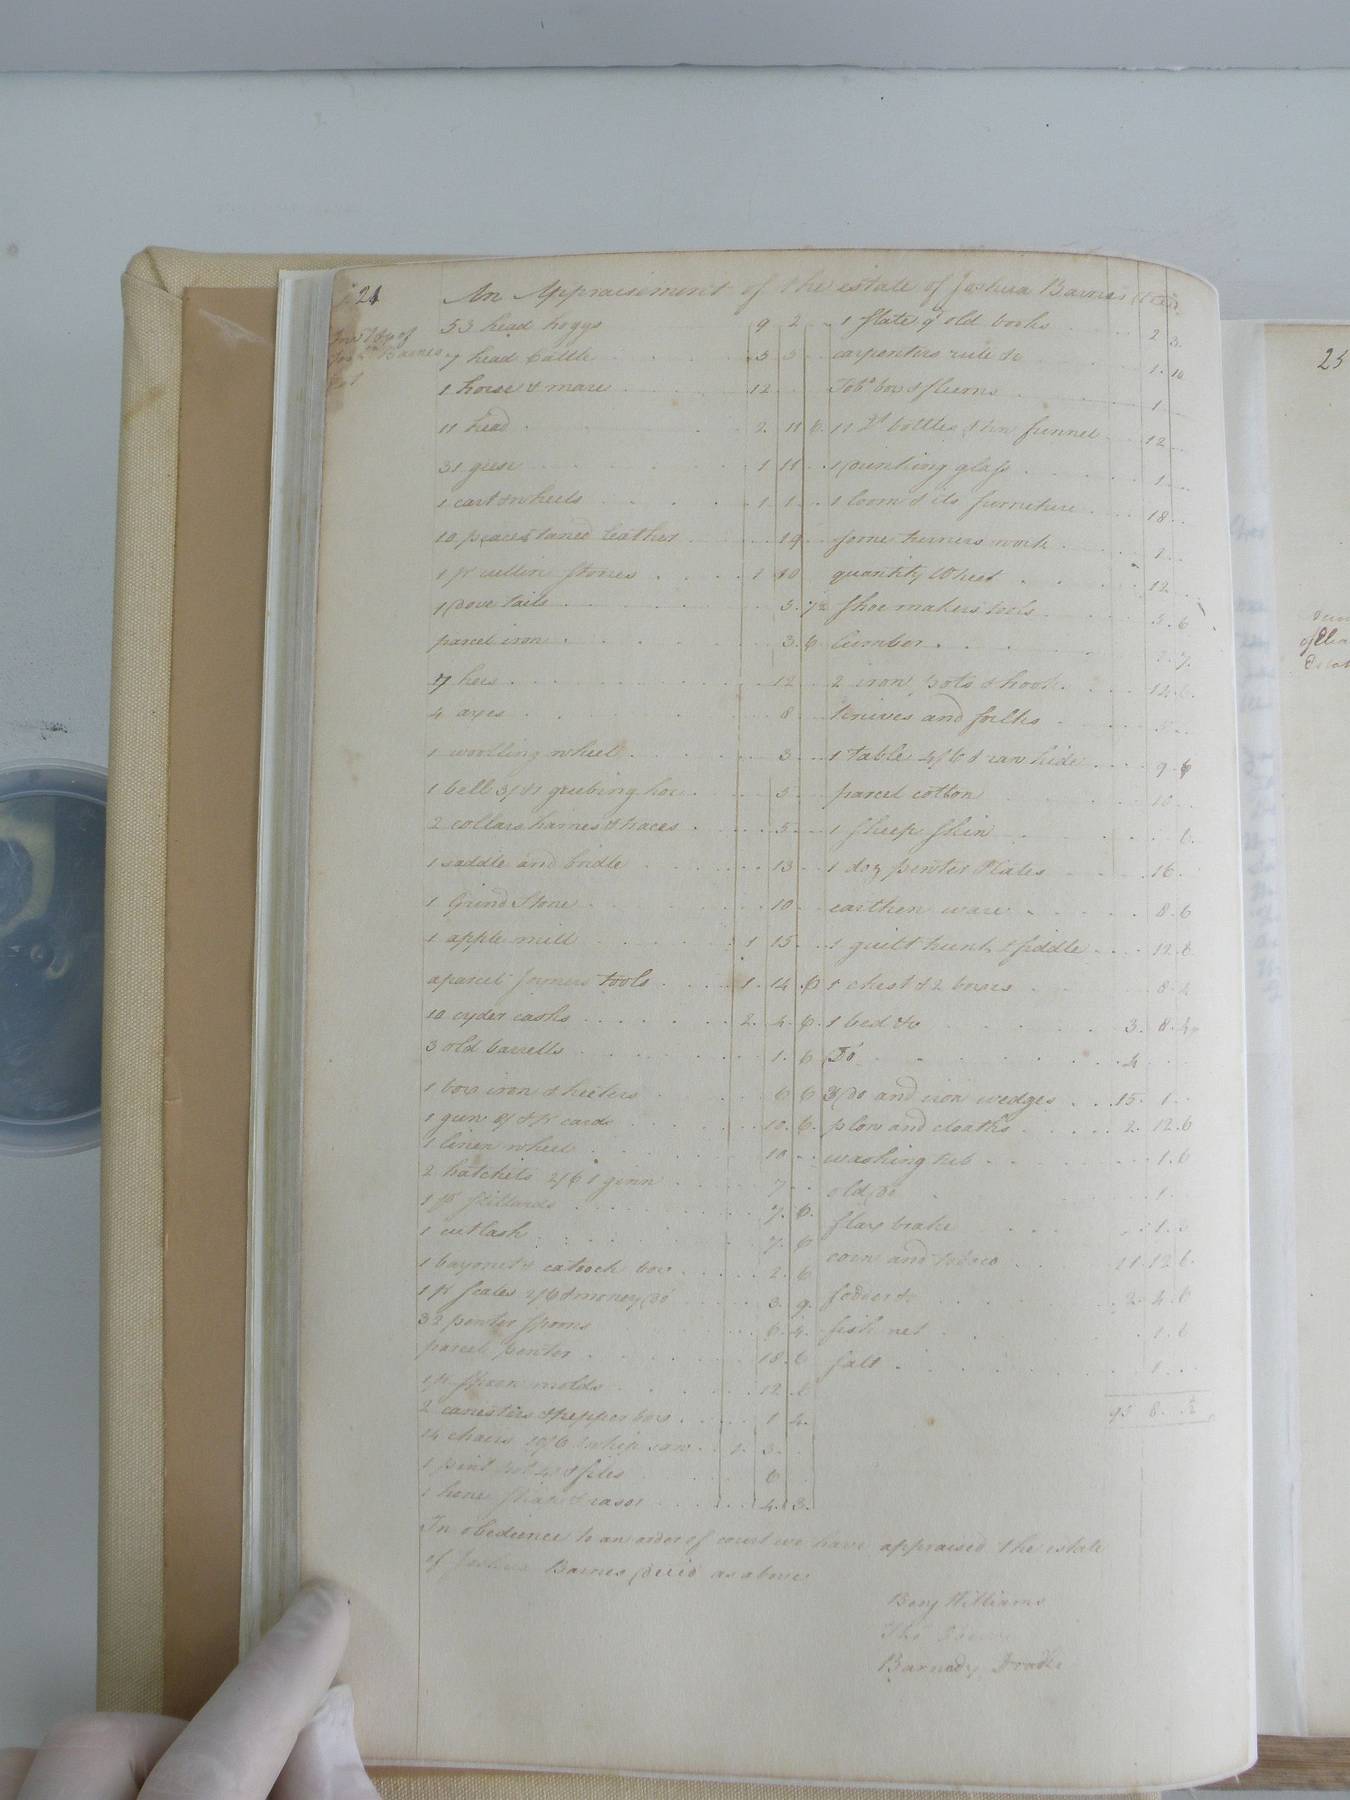 21
An Appraisement of the estate of Joshua Barnes
Barnes
53 head hoggs 9 2
7 head Cattle 5 5
1 horse & mare 12
11 head 2. 11 6
31 geese 1 11
1 cart & wheels 1. 1
10 peaces taned leather 19
1 pr stones 1 10
3. 7½
parcel iron 3. 6
7 hoes 12
4 axes 8
1 woolling wheel 3
1 bell 3/ & 1 grubing hoe 5
2 collars hames & traces 5
1 saddle and bridle 13
1 Grind Stone 10
1 apple mill 1 15
a parcel tools 1. 14. 6
10 cyder casks 2. 4. 6
3 old barrells 1. 6
1 box iron & heeters 6 6
1 gun 8/ & pr cards 10. 6
1 linen wheel 10
2 hatchets 2/6 1 7
1 pr Stillards 7. 6
1 cutlash 7. 6
1 bayonet & catooch box 2. 6
1 pr Scales 2/6 & money Do 3. 9
32 pewter spoons 6. 4
parcel pewter 18. 6
1 pr spoon molds 12
2 canesters & pepper box 1 4
14 chairs whip saw 1. 3
1 pint pot & files 6
1 hone & rasor 4. 3
1 slate & old books 2 3
carpenters rule &c 1. 10
1
bottles & tin funnel 12
1 Drinking glass 1
1 loom & its furneture 18
some turners work 1
quantity Wheet 12
Shoe makers tools 5. 6
lumber 7
2 iron pots & hook 12. 6
knives and forks 5
1 table 4/6 & raw hide 9. 6
parcel cotton 10
1 Sheep Skin
1 doz pewter Plates 16
earthen ware 8. 6
1 quilt trunk & fiddle 12. 6
1 chest & 2 boxes 8. 4
1 bed &c 3. 8. 4
Do 4
3 Do and iron wedges 15. 1
plow and cloaths 2. 12. 6
washing tub 1. 6
old Do 1
flax brake 1
corn and tobaco 11. 12 6
fodder &c 2. 4. 6
fish net 1. 6
salt 1
95 6
In obedience to an order of court we have appraised the estate
of Joshua Barnes Deced as above
Benj Williams
Thos
Barnaby
25